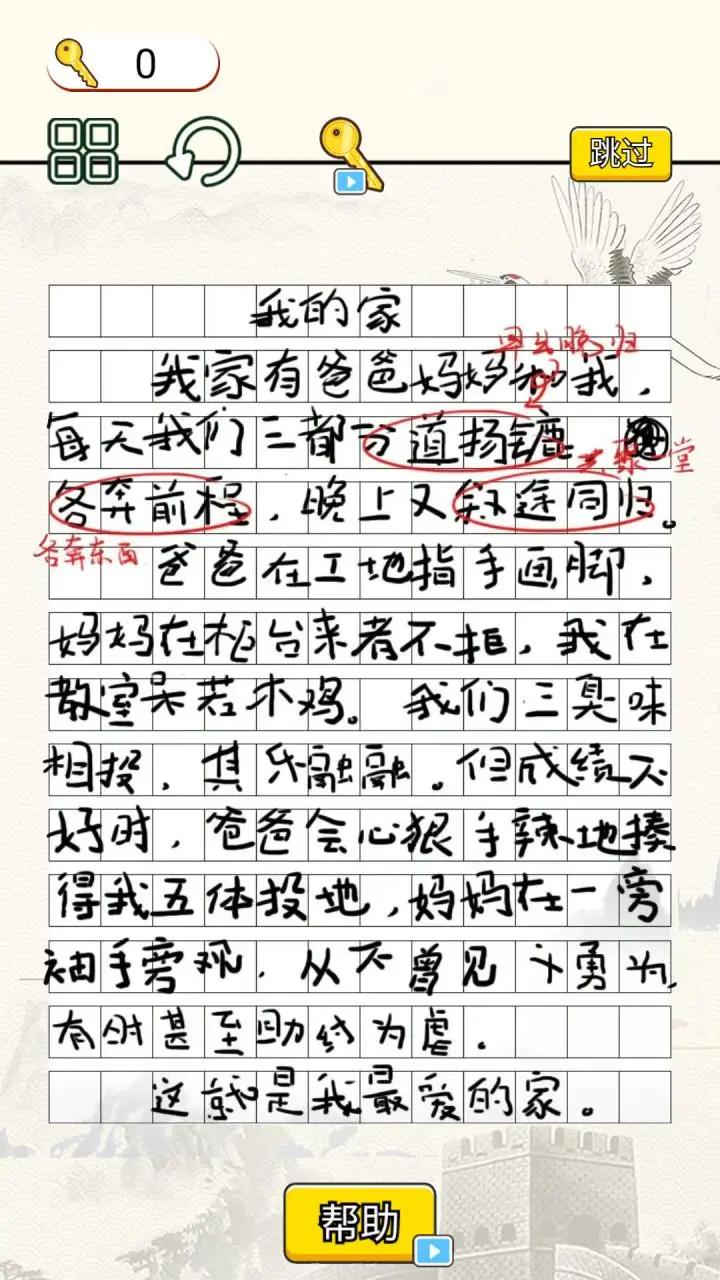 0
跳过
我的家
早出晚归
我家有爸爸妈妈和我,
每天我们三都分道扬镳
共聚一堂
各奔前程,晚上又叙途同归。
各奔东西
爸爸在工地指手画脚,
妈妈在柜台来者不拒,我在
教室呆若木鸡。我们三臭味
相投,其乐融融。但成绩不
好时,爸爸会心狠手辣地揍
得我五体投地,妈妈在一旁
袖手旁观.从不曾见 勇为,
有时甚至助纣为虐.
这就是我最爱的家。
帮助